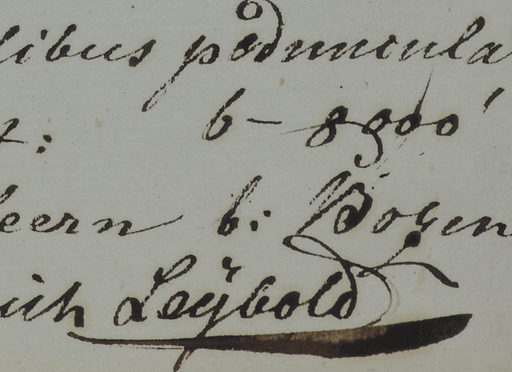 libus peduncula
: 6 – 8000'
eern b. Bozen
ich Leÿbold